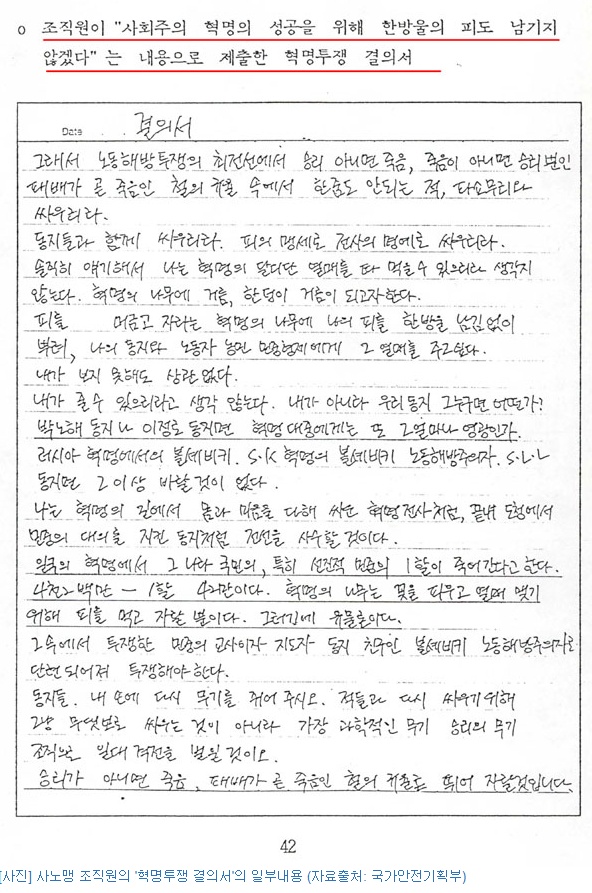 o 조직원이 "사회주의 혁명의 성공을 위해 한방울의 피도 남기지
않겠다" 는 내용으로 제출한 혁명투쟁 결의서
Date 결의서
그래서 노동해방투쟁의 최전선에서 승리 아니면 죽음, 죽음이 아니면 승리뿐인
패배가 곧 죽음인 철의 규율 속에서 한줌도 안되는 적, 타소무리와
싸우리라.
동지들과 함께 싸우리라. 피의 맹세로 전사의 명예로 싸우리라.
솔직히 얘기해서 나는 혁명의 달디단 열매를 따 먹을수 있으리라 생각지
않는다. 혁명의 나무에 거름, 한덩이 거름이 되고자한다.
피를 머금고 자라는 혁명의 나무에 나의 피를 한방울 남김없이
뿌려, 나의 동지와 노동자 농민 민중형제에게 그 열매를 주고싶다.
내가 보지 못해도 상관 없다.
내가 줄수 있으리라고 생각 않는다. 내가 아니라 우리동지 그누구면 어떤가?
박노해 동지나 이정로 동지면 혁명 대중에게는 또 그얼마나 영광인가.
러시아 혁명에서의 볼셰비키. S.K 혁명의 볼셰비키 노동해방주의자. S.L.L
동지면 그 이상 바랄것이 없다.
나는 혁명의 길에서 몸과 마음을 다해 싸운 혁명전사처럼, 끝내 도청에서
민중의 대의를 지킨 동지처럼 전선을 사수할 것이다.
일국의 혁명에서 그 나라 국민의, 특히 선진적 민중의 1할이 죽어간다고 한다.
사천2백만 - 1할 42만이다. 혁명의 나무는 꽃을 피우고 열매 맺기
위해 피를 먹고 자랄 뿐이다. 그러기에 규율론이다.
그속에서 투쟁한 민중의 교사이자 지도자 동지 친구인 볼셰비키 노동해방주의자로
단련되어져 투쟁해야한다.
동지들. 내 손에 다시 무기를 쥐어 주시오. 적들과 다시 싸우기위해
그냥 무엇보로 싸우는 것이 아니라 가장 과학적인 무기 승리의 무기
조직으로 일대 격전을 벌일 것이오.
승리가 아니면 죽음, 패배가 곧 죽음인 철의 규율로 뛰어 자랄것입니다.
42
[사진] 사노맹 조직원의 '혁명투쟁 결의서'의 일부내용 (자료출처: 국가안전기획부)